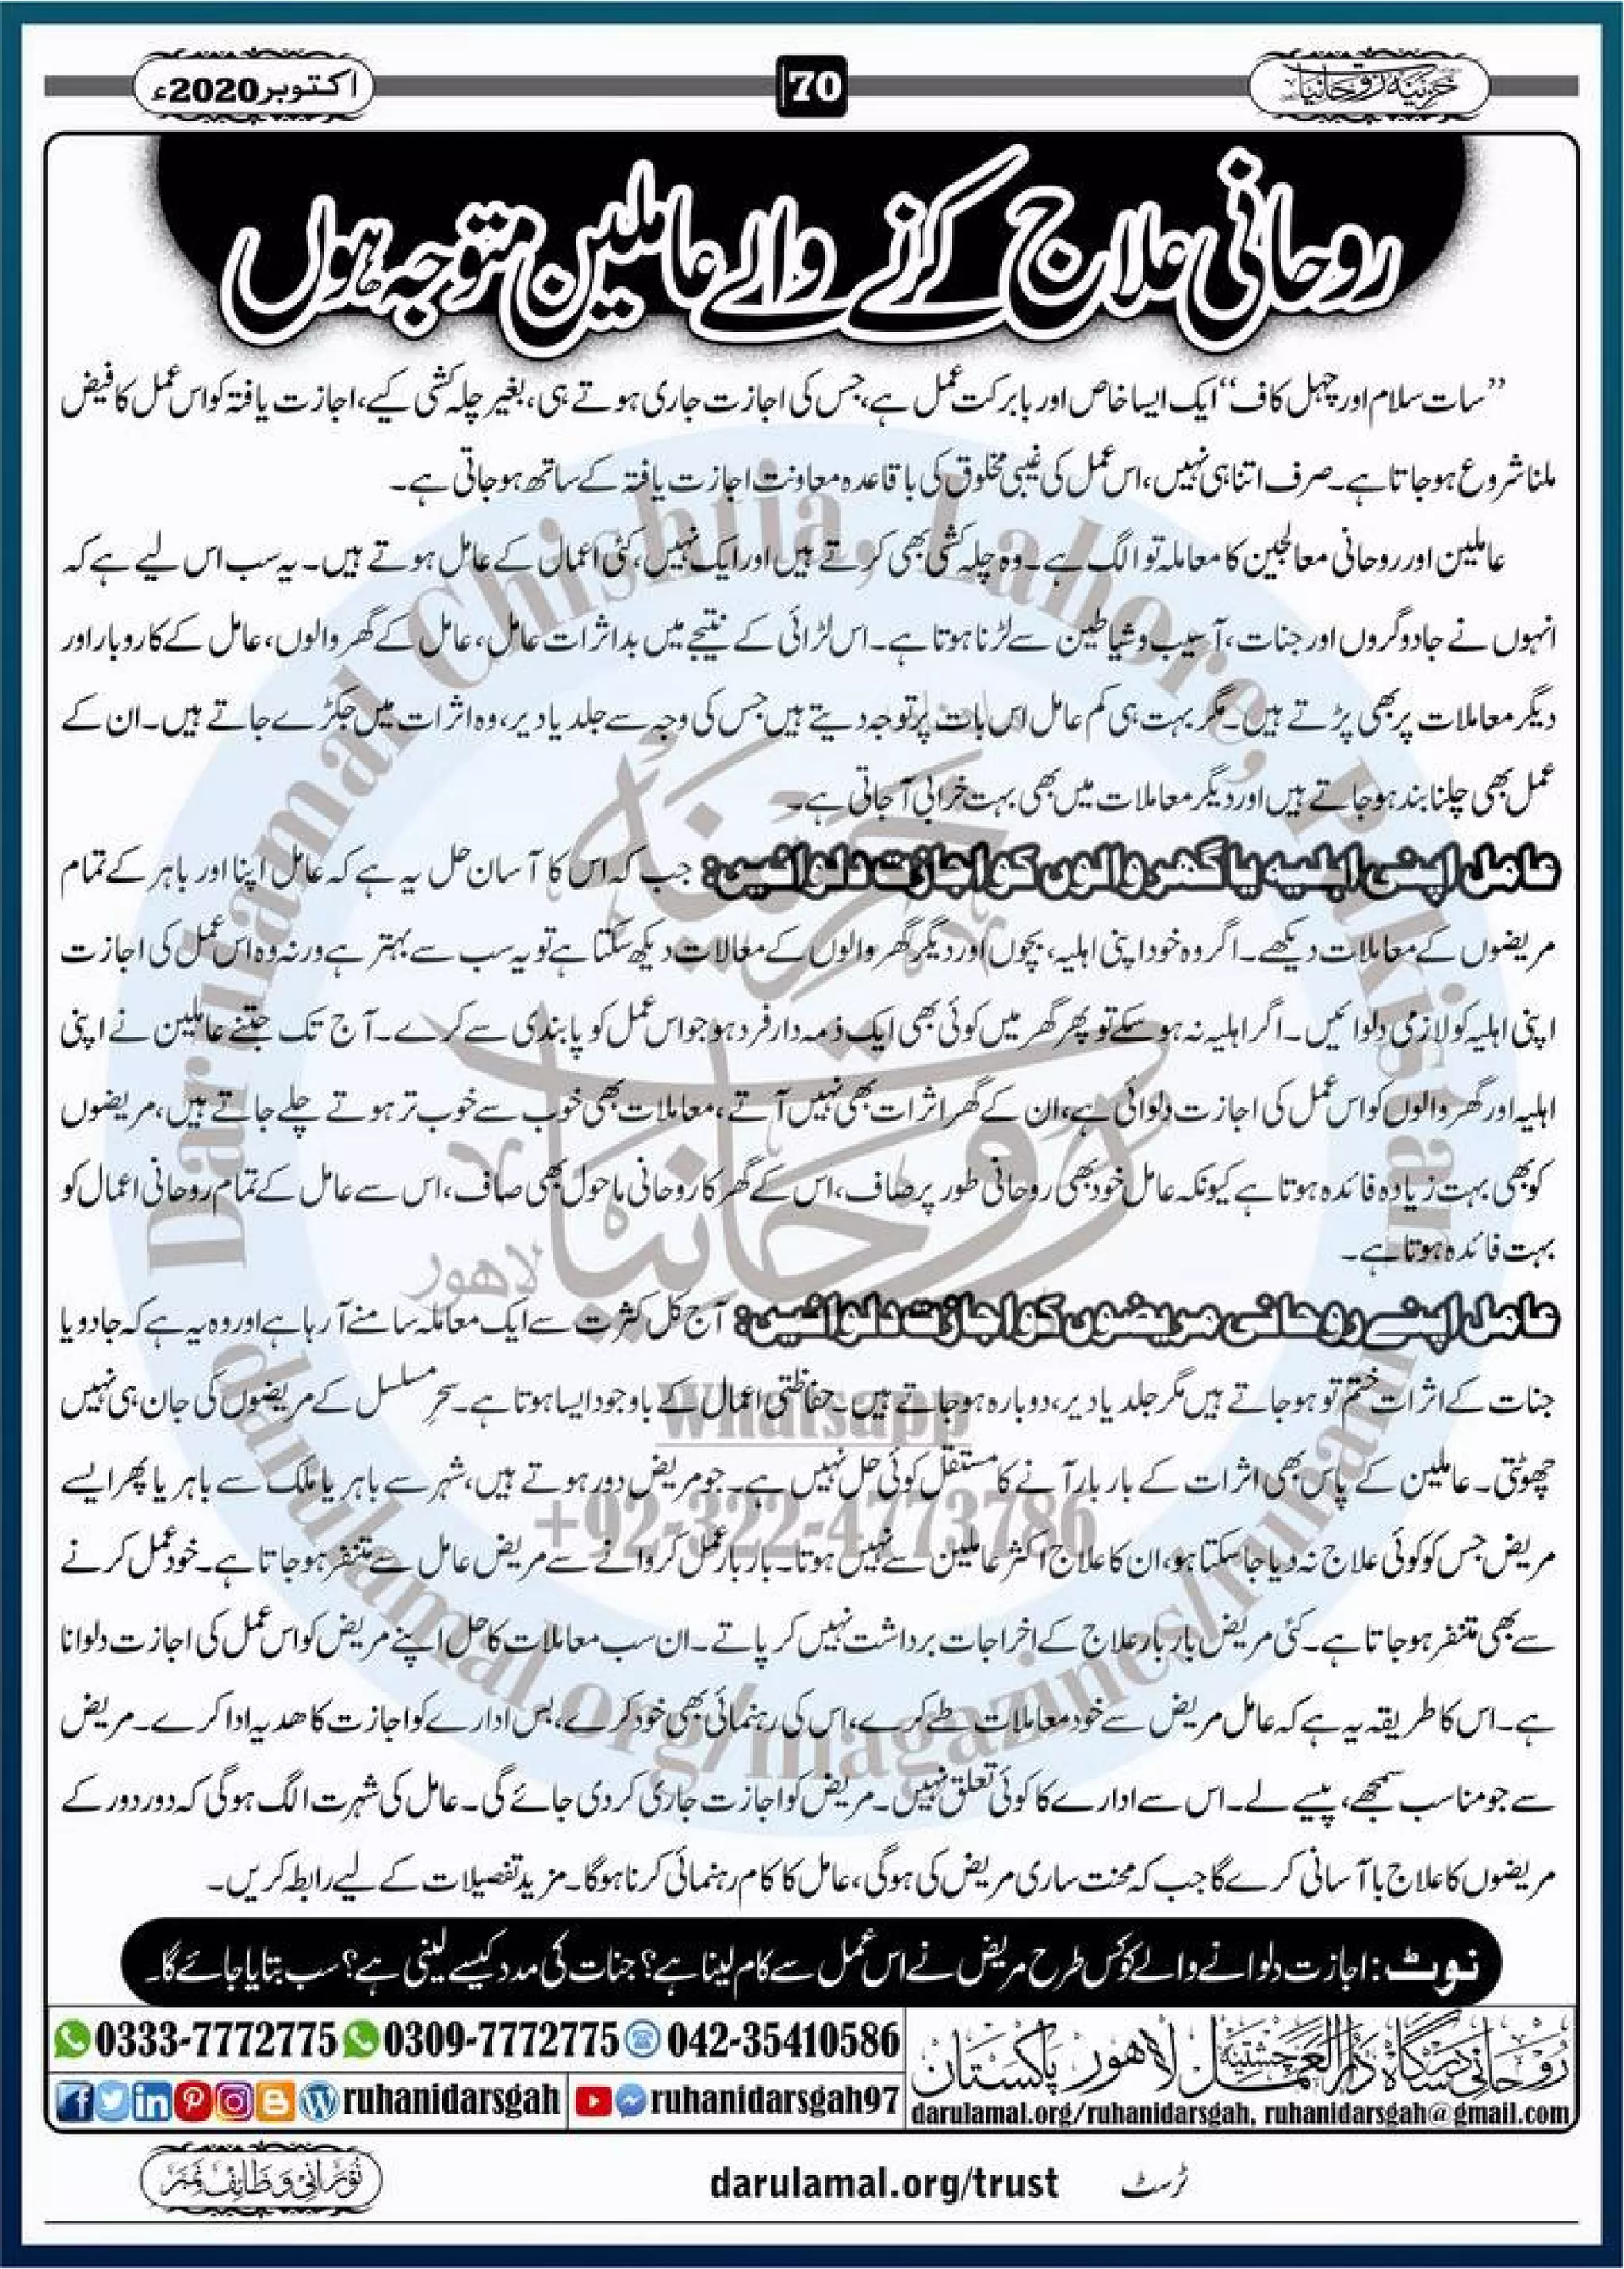 خزینۂ روحانیات
70
اکتوبر2020ء
روحانی علاج کرنے والے عاملین متوجہ ہوں
”سات سلام اور چہل کاف“ ایک ایسا خاص اور بابرکت عمل ہے، جس کی اجازت جاری ہوتے ہی، بغیر چلہ کشی کیے، اجازت یافتہ کو اس عمل کا فیض
ملنا شروع ہوجاتا ہے۔ صرف اتنا ہی نہیں، اس عمل کی غیبی مخلوق کی باقاعدہ معاونت اجازت یافتہ کے ساتھ ہوجاتی ہے۔
عاملین اور روحانی معالجین کا معاملہ تو الگ ہے۔ وہ چلہ کشی بھی کرتے ہیں اور ایک نہیں، کئی اعمال کے عامل ہوتے ہیں۔ یہ سب اس لیے ہے کہ
انہوں نے جادوگروں اور جنات، آسیب و شیاطین سے لڑنا ہوتا ہے۔ اس لڑائی کے نتیجے میں بداثرات عامل، عامل کے گھر والوں، عامل کے کاروبار اور
دیگر معاملات پر بھی پڑتے ہیں۔ مگر بہت ہی کم عامل اس بات پر توجہ دیتے ہیں جس کی وجہ سے جلد یا دیر، وہ اثرات میں جکڑے جاتے ہیں۔ ان کے
عمل بھی چلنا بند ہوجاتے ہیں اور دیگر معاملات میں بھی بہت خرابی آجاتی ہے۔
عامل اپنی اہلیہ یا گھر والوں کو اجازت دلوائیں: جب کہ اس کا آسان حل یہ ہے کہ عامل اپنا اور باہر کے تمام
مریضوں کے معاملات دیکھے۔ اگر وہ خود اپنی اہلیہ، بچوں اور دیگر گھر والوں کے معالات دیکھ سکتا ہے تو یہ سب سے بہتر ہے ورنہ وہ اس عمل کی اجازت
اپنی اہلیہ کو لازمی دلوائیں۔ اگر اہلیہ نہ ہوسکے تو پھر گھر میں کوئی بھی ایک ذمہ دار فرد ہو جو اس عمل کو پابندی سے کرے۔ آج تک جتنے عاملین نے اپنی
اہلیہ اور گھر والوں کو اس عمل کی اجازت دلوائی ہے، ان کے گھر اثرات بھی نہیں آتے، معاملات بھی خوب سے خوب تر ہوتے چلے جاتے ہیں، مریضوں
کو بھی بہت زیادہ فائدہ ہوتا ہے کیونکہ عامل خود بھی روحانی طور پر صاف، اس کے گھر کا روحانی ماحول بھی صاف، اس سے عامل کے تمام روحانی اعمال کو
بہت فائدہ ہوتا ہے۔
عامل اپنے روحانی مریضوں کو اجازت دلوائیں: آج کل کثرت سے ایک معاملہ سامنے آرہا ہے اور وہ یہ ہے کہ جادو یا
جنات کے اثرات ختم تو ہوجاتے ہیں مگر جلد یا دیر، دوبارہ ہوجاتے ہیں۔ حفاظتی اعمال کے باوجود ایسا ہوتا ہے۔ سحرِ مسلسل کے مریضوں کی جان ہی نہیں
چھوٹتی۔ عاملین کے پاس بھی اثرات کے بار بار آنے کا مستقل کوئی حل نہیں ہے۔ جو مریض دور ہوتے ہیں، شہر سے باہر یا ملک سے باہر یا پھر ایسے
مریض جس کو کوئی علاج نہ دیا جاسکتا ہو، ان کا علاج اکثر عاملین سے نہیں ہوتا۔ بار بار عمل کروانے سے مریض عامل سے متنفر ہوجاتا ہے۔ خود عمل کرنے
سے بھی متنفر ہوجاتا ہے۔ کئی مریض بار بار علاج کے اخراجات برداشت نہیں کر پاتے۔ ان سب معاملات کا حل اپنے مریض کو اس عمل کی اجازت دلوانا
ہے۔ اس کا طریقہ یہ ہے کہ عامل مریض سے خود معاملات طے کرے، اس کی رہنمائی بھی خود کرے، بس ادارے کو اجازت کا ھدیہ ادا کرے۔ مریض
سے جو مناسب سمجھے، پیسے لے۔ اس سے ادارے کا کوئی تعلق نہیں۔ مریض کو اجازت جاری کردی جائے گی۔ عامل کی شہرت الگ ہوگی کہ دور دور کے
مریضوں کا علاج باآسانی کرے گا جب کہ محنت ساری مریض کی ہوگی، عامل کا کام رہنمائی کرنا ہوگا۔ مزید تفصیلات کے لیے رابطہ کریں۔
نوٹ: اجازت دلوانے والے کو کس طرح مریض نے اس عمل سے کام لینا ہے؟ جنات کی مدد کیسے لینی ہے؟ سب بتایا جائے گا۔
روحانی درسگاہ دارالعمل چشتیہ لاھور پاکستان
darulamal.org/ruhanidarsgah, ruhanidarsgah@gmail.com
0333-7772775 0309-7772775 042-35410586
ruhanidarsgah ruhanidarsgah97
ٹرسٹ darulamal.org/trust
نورانی وظائف نمبر
Dar ul amal Chishtia, Lahore, Pakistan
خزینۂ
روحانیات
لاھور
Whatsapp
+92-322-4773786
darulamal.org/magazines/ruhani